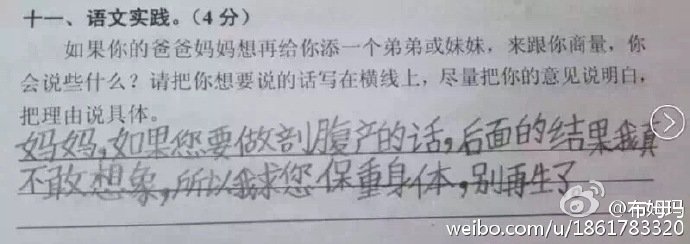 十一、语文实践。(4 分)
如果你的爸爸妈妈想再给你添一个弟弟或妹妹，来跟你商量，你
会说些什么？请把你想要说的话写在横线上，尽量把你的意见说明白，
把理由说具体。
妈妈,如果您要做剖腹产的话,后面的结果我真
不敢想象,所以我求您保重身体,别再生了
@布姆玛
weibo.com/u/1861783320